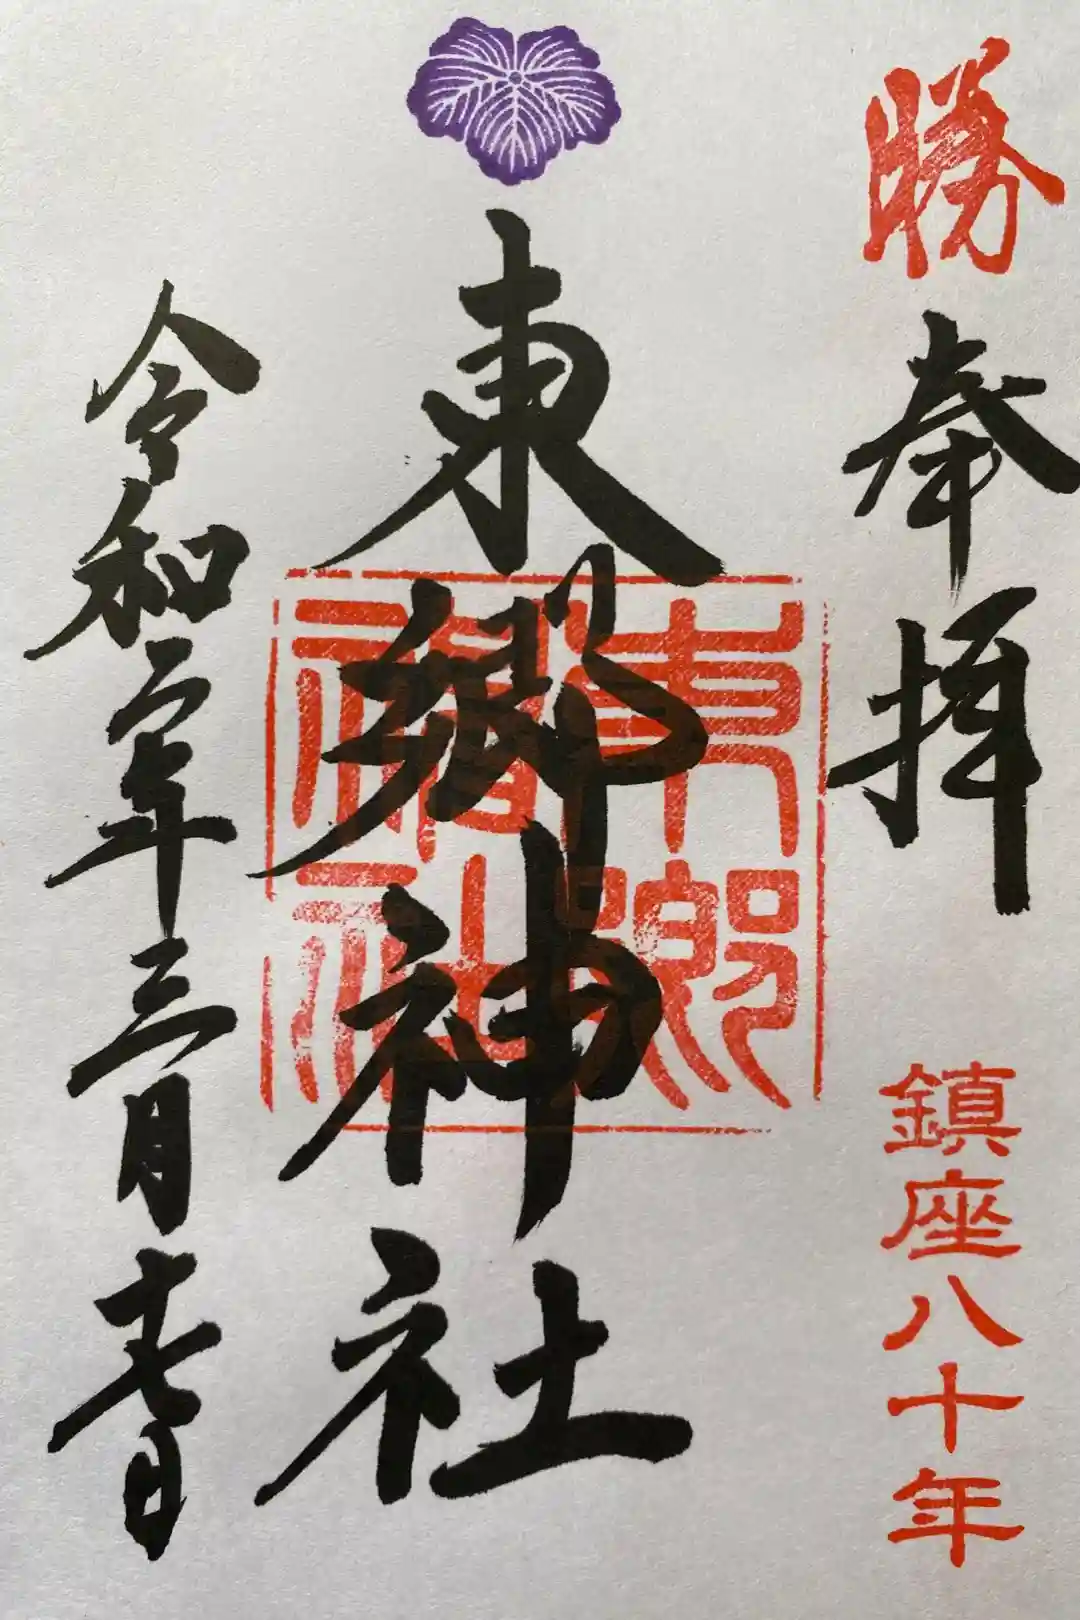 勝
奉拝
鎮座八十年
東郷神社
東郷
神社
令和二年三月